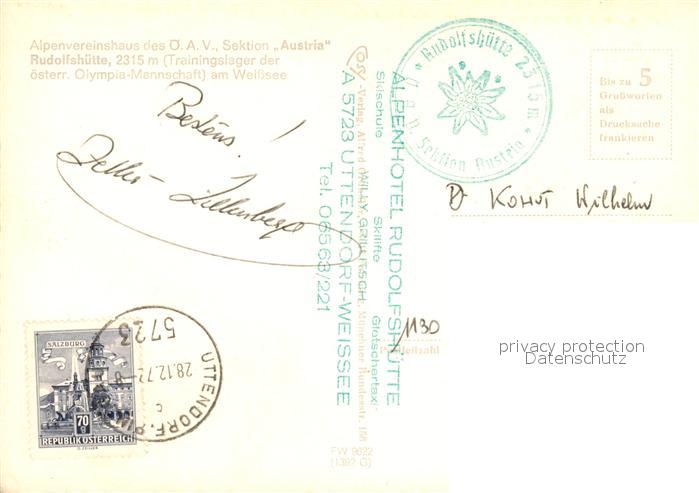 Alpenvereinshaus des Ö. A. V., Sektion „Austria"
Rudolfshütte, 2315 m (Trainingslager der
österr. Olympia-Mannschaft) am Weißsee
Bestens!
Bis zu 5
Grußworten
als
Drucksache
frankieren
Rudolfshütte 2315m
Sektion Austria
ALPENHOTEL RUDOLFSHÜTTE
Skischule Skilifte Gletschertaxi
WILLY GRILLITSCH
A 5723 UTTENDORF-WEISSEE
Tel. 06563/221
-Verlag, Alfred Münchner Bundesstr. 158
FW 9622
(1392 G)
Kohut Wilhelm
1130
privacy protection
Datenschutz
SALZBURG
70 g
REPUBLIK ÖSTERREICH
5723
UTTENDORF
28.12.7